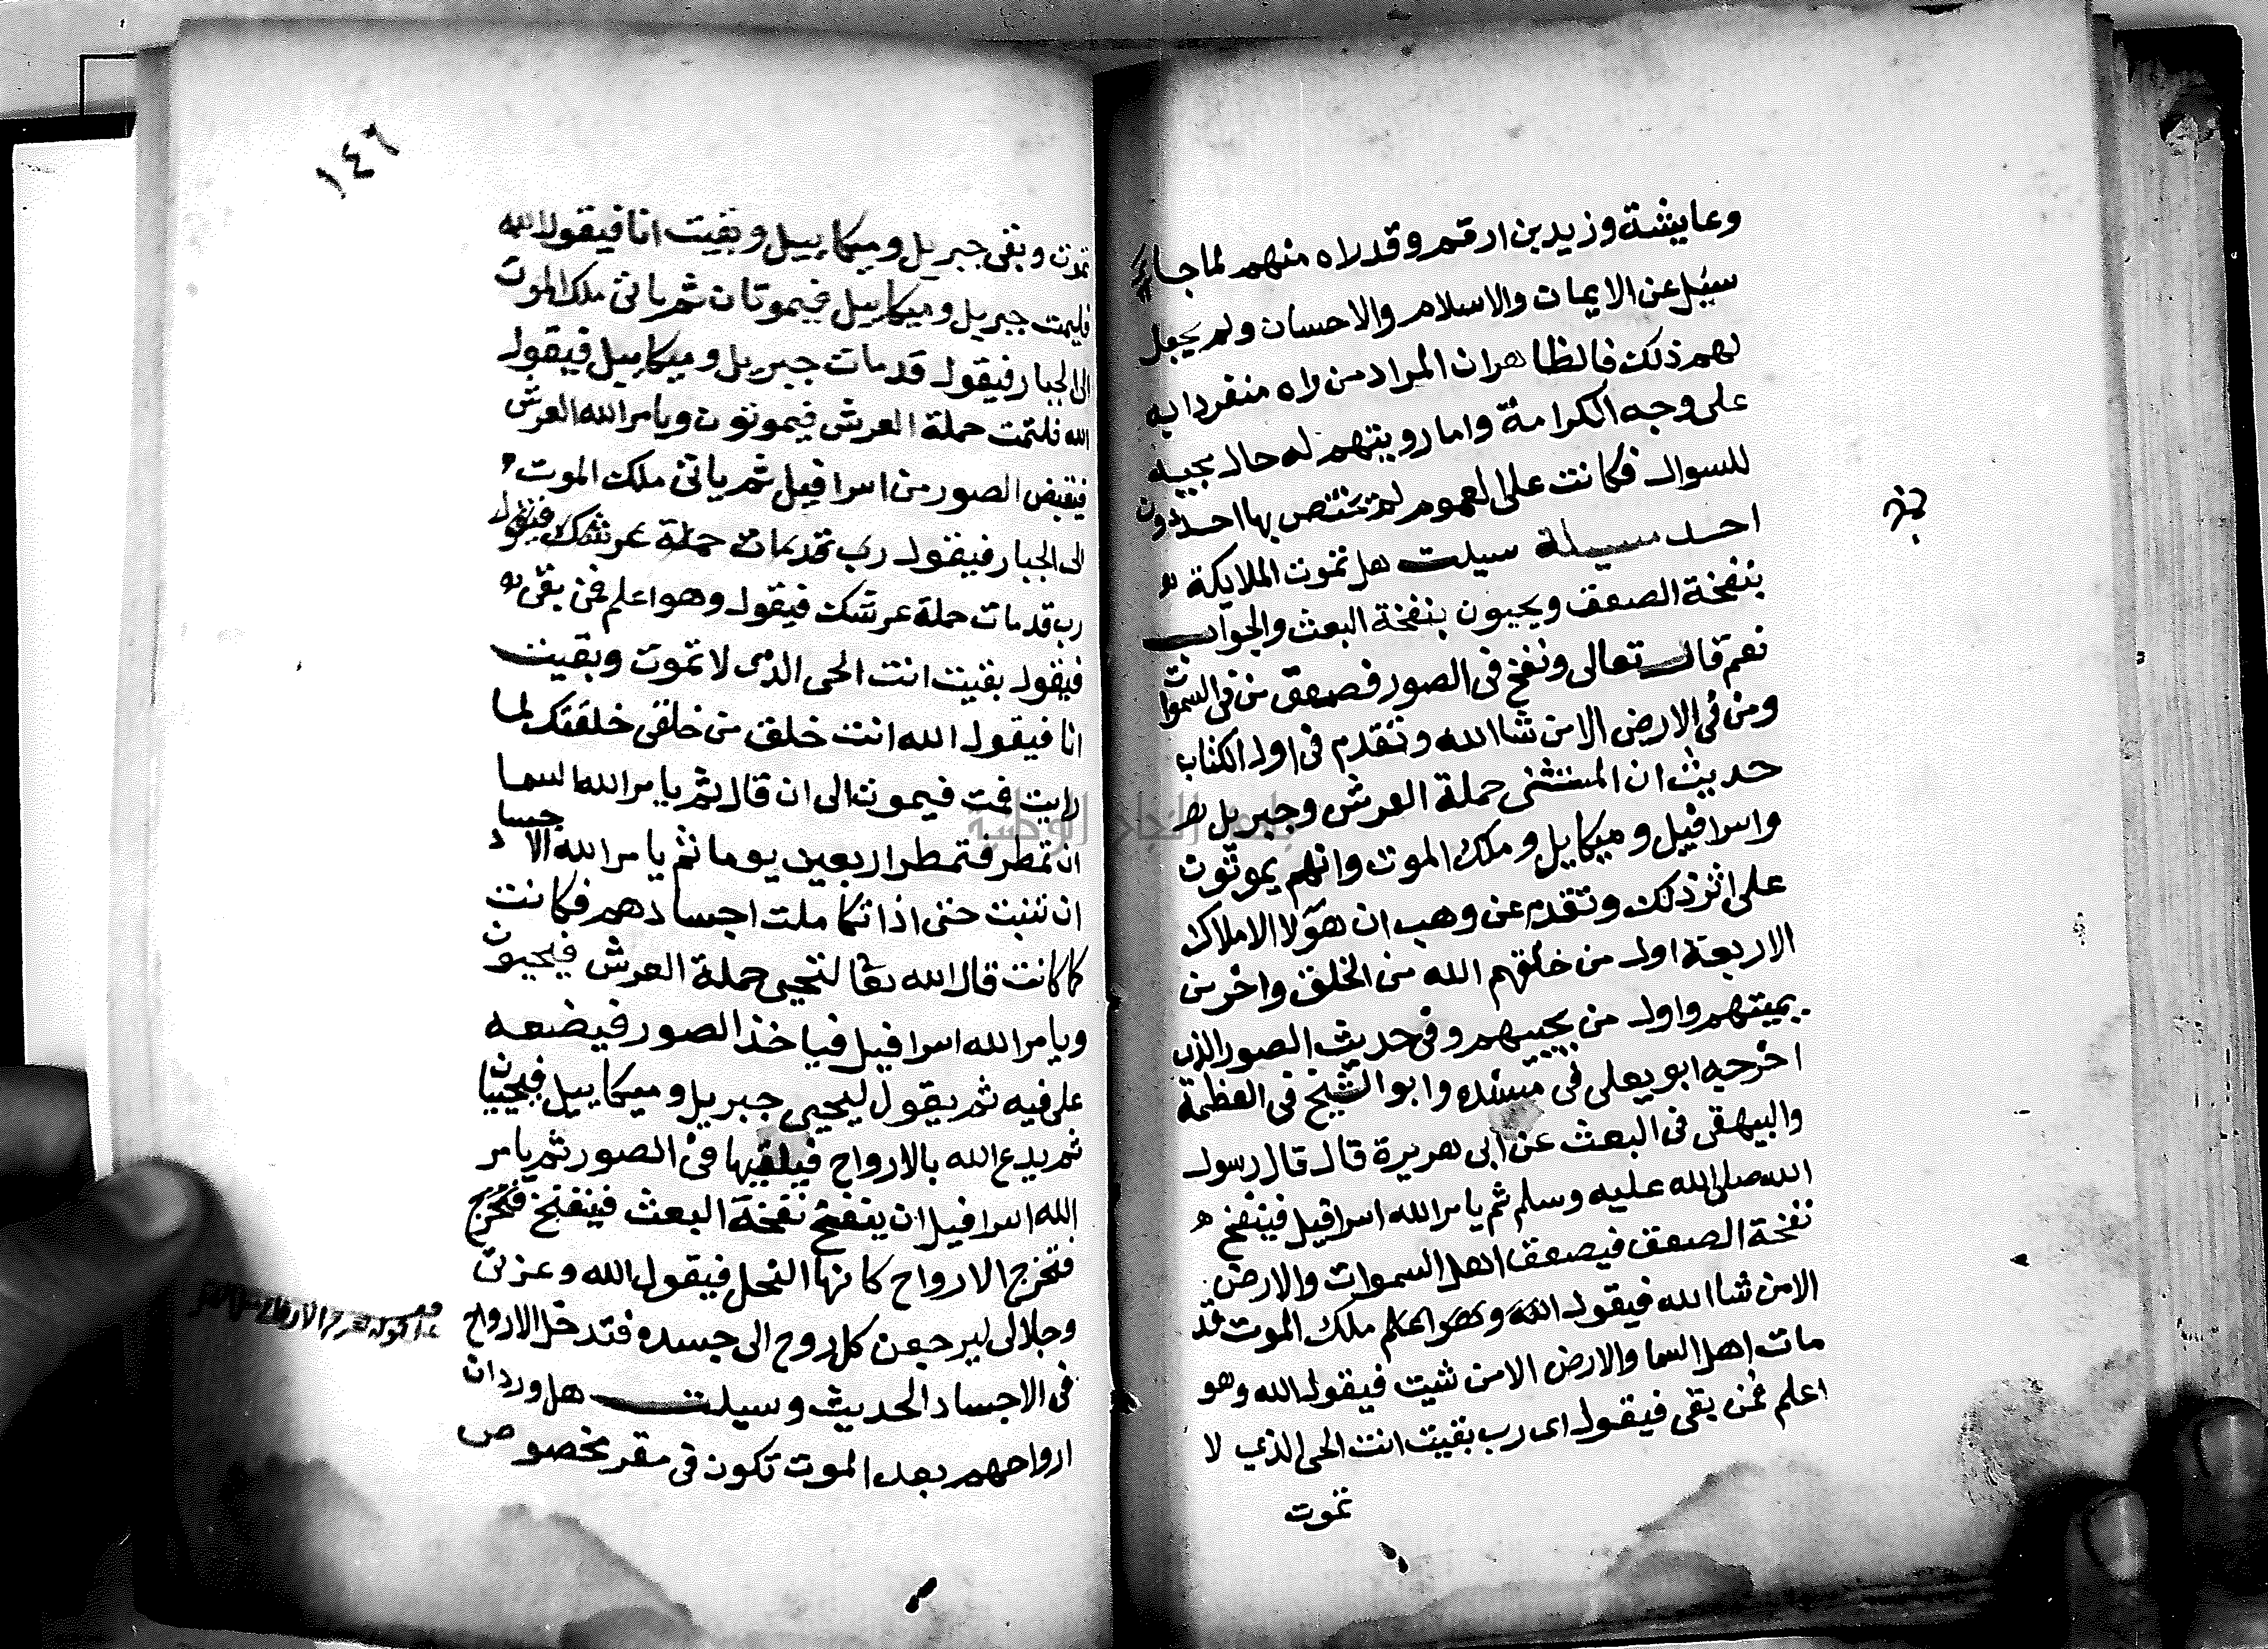 وعايشة وزيد بن ارقم وقد راه منهم لما جا
سيل عن الايمان والاسلام والاحسان ولم يجعل
لهم ذلك فالظاهر ان المراد من راه منفردا به
على وجه الكرامة واما رويتهم له حال مجيه
للسوال فكانت على العموم لم تختص بها احد دون
احد مسيلة سيلت هل تموت الملايكة
بنفخة الصعق ويحيون بنفخة البعث والجواب
نعم قال تعالى ونفخ في الصور فصعق من في السموات
ومن في الارض الا من شا الله وتقدم في اول الكتاب
حديث ان المستثنى حملة العرش وجبريل
واسرافيل وميكايل وملك الموت وانهم يموتون
على اثر ذلك وتقدم عن وهب ان هولا الاملاك
الاربعة اول من خلقهم الله من الخلق واخر من
يميتهم واول من يحييهم وفي حديث الصور الذي
اخرجه ابو يعلى في مسنده وابو الشيخ في العظمة
والبيهقي في البعث عن ابي هريرة قال قال رسول
الله صلى الله عليه وسلم ثم يامر الله اسرافيل فينفخ
نفخة الصعق فيصعق اهل السموات والارض
الا من شا الله فيقول الله وهو اعلم ملك الموت قد
مات اهل السما والارض الا من شيت فيقول الله وهو
اعلم فمن بقى فيقول اى رب بقيت انت الحى الذي لا
تموت
١٤٦
تموت وبقى جبريل وميكاييل وبقيت انا فيقول الله
فليمت جبريل وميكاييل فيموتان ثم ياتى ملك الموت
الى الجبار فيقول قد مات جبريل وميكاييل فيقول
الله فلتمت حملة العرش فيموتون ويامر الله العرش
فيقبض الصور من اسرافيل ثم ياتى ملك الموت
الى الجبار فيقول رب قد مات حملة عرشك فيقول
رب قد مات حملة عرشك فيقول وهو اعلم فمن بقى
فيقول بقيت انت الحى الذى لا تموت وبقيت
انا فيقول الله انت خلق من خلقى خلقتك لما
رايت فمت فيموت الى ان قال ثم يامر الله السما
ان تمطر فتمطر اربعين يوما ثم يامر الله الاجساد
ان تنبت حتى اذا تكاملت اجسادهم فكانت
كما كانت قال الله تعا لتحيى حملة العرش فيحيون
ويامر الله اسرافيل فياخذ الصور فيضعه
على فيه ثم يقول ليحيى جبريل وميكاييل فيحييان
ثم يدع الله بالارواح فيلقيها في الصور ثم يامر
الله اسرافيل ان ينفخ نفخة البعث فينفخ فتخرج
فتخرج الارواح كانها النحل فيقول الله وعزتى
وجلالى ليرجعن كل روح الى جسده فتدخل الارواح
في الاجساد الحديث وسيلت هل ورد ان
ارواحهم بعد الموت تكون في مقر مخصوص
جامعة النجاح الوطنية